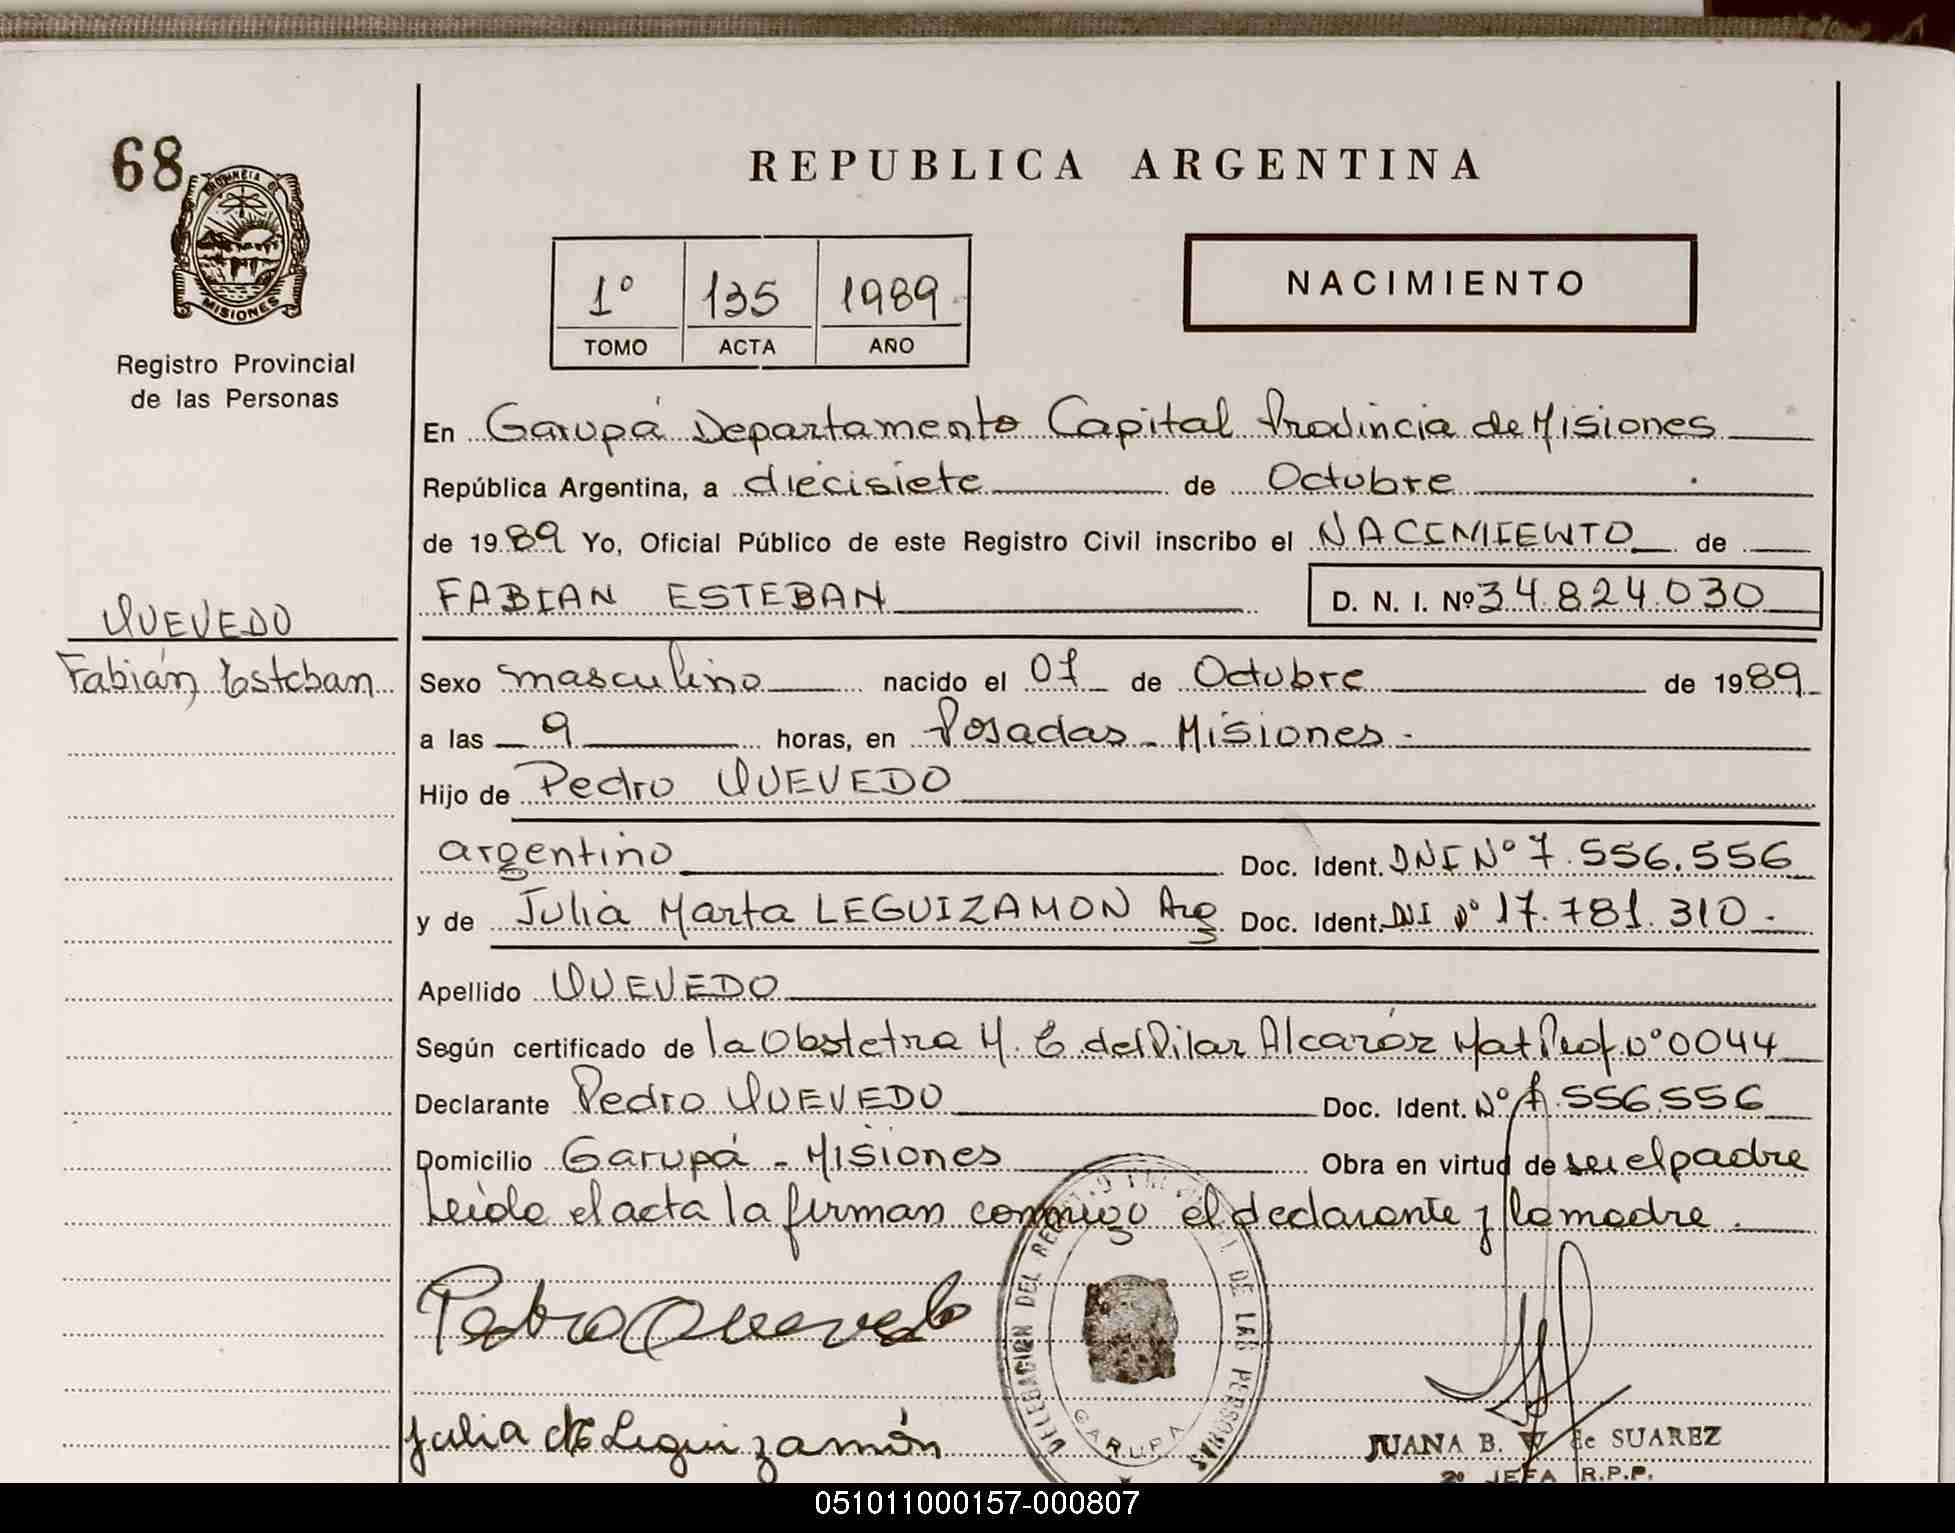 68
PROVINCIA DE
MISIONES
Registro Provincial
de las Personas
REPUBLICA ARGENTINA
1º 135 1989
TOMO ACTA AÑO
NACIMIENTO
En Garupá Departamento Capital Provincia de Misiones
República Argentina, a diecisiete de Octubre
de 1989 Yo, Oficial Público de este Registro Civil inscribo el NACIMIENTO de
FABIAN ESTEBAN D. N. I. Nº 34.824.030
QUEVEDO
Fabián Esteban
Sexo masculino nacido el 01 de Octubre de 1989
a las 9 horas, en Posadas - Misiones -
Hijo de Pedro QUEVEDO
argentino Doc. Ident. DNI Nº 7.556.556
y de Julia Marta LEGUIZAMON Arg Doc. Ident. DNI Nº 17.781.310.-
Apellido QUEVEDO
Según certificado de la Obstetra M. E. del Pilar Alcaráz Mat Prof. Nº 0044
Declarante Pedro QUEVEDO Doc. Ident. Nº 7.556.556
Domicilio Garupá - Misiones Obra en virtud de ser el padre
Leida el acta la firman conmigo el declarante y la madre.
Pedro Quevedo
DELEGACION DEL DE LAS PERSONAS
GARUPA
Julia de Leguizamón
JUANA B. de SUAREZ
2º JEFA R.P.P.
051011000157-000807